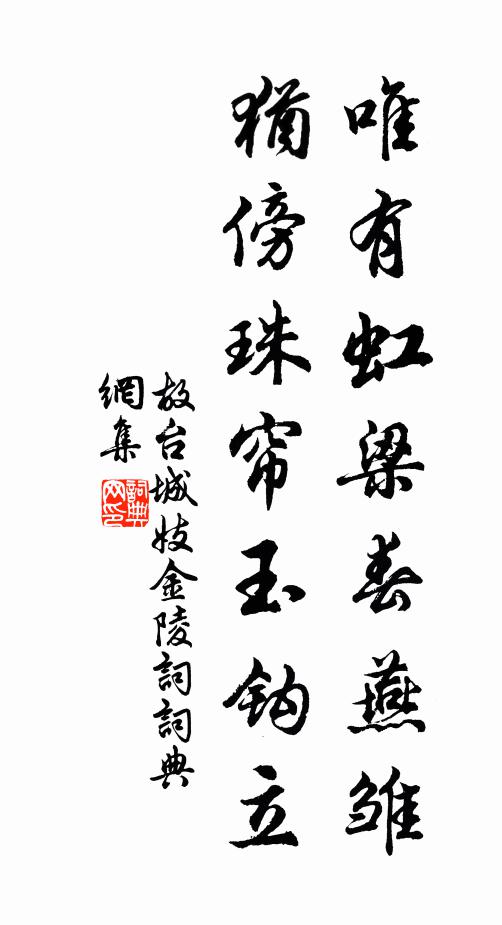 唯有虹梁春燕雏
犹傍珠帘玉钩立
故台城妓金陵詞詞典
網集
詞典
网印